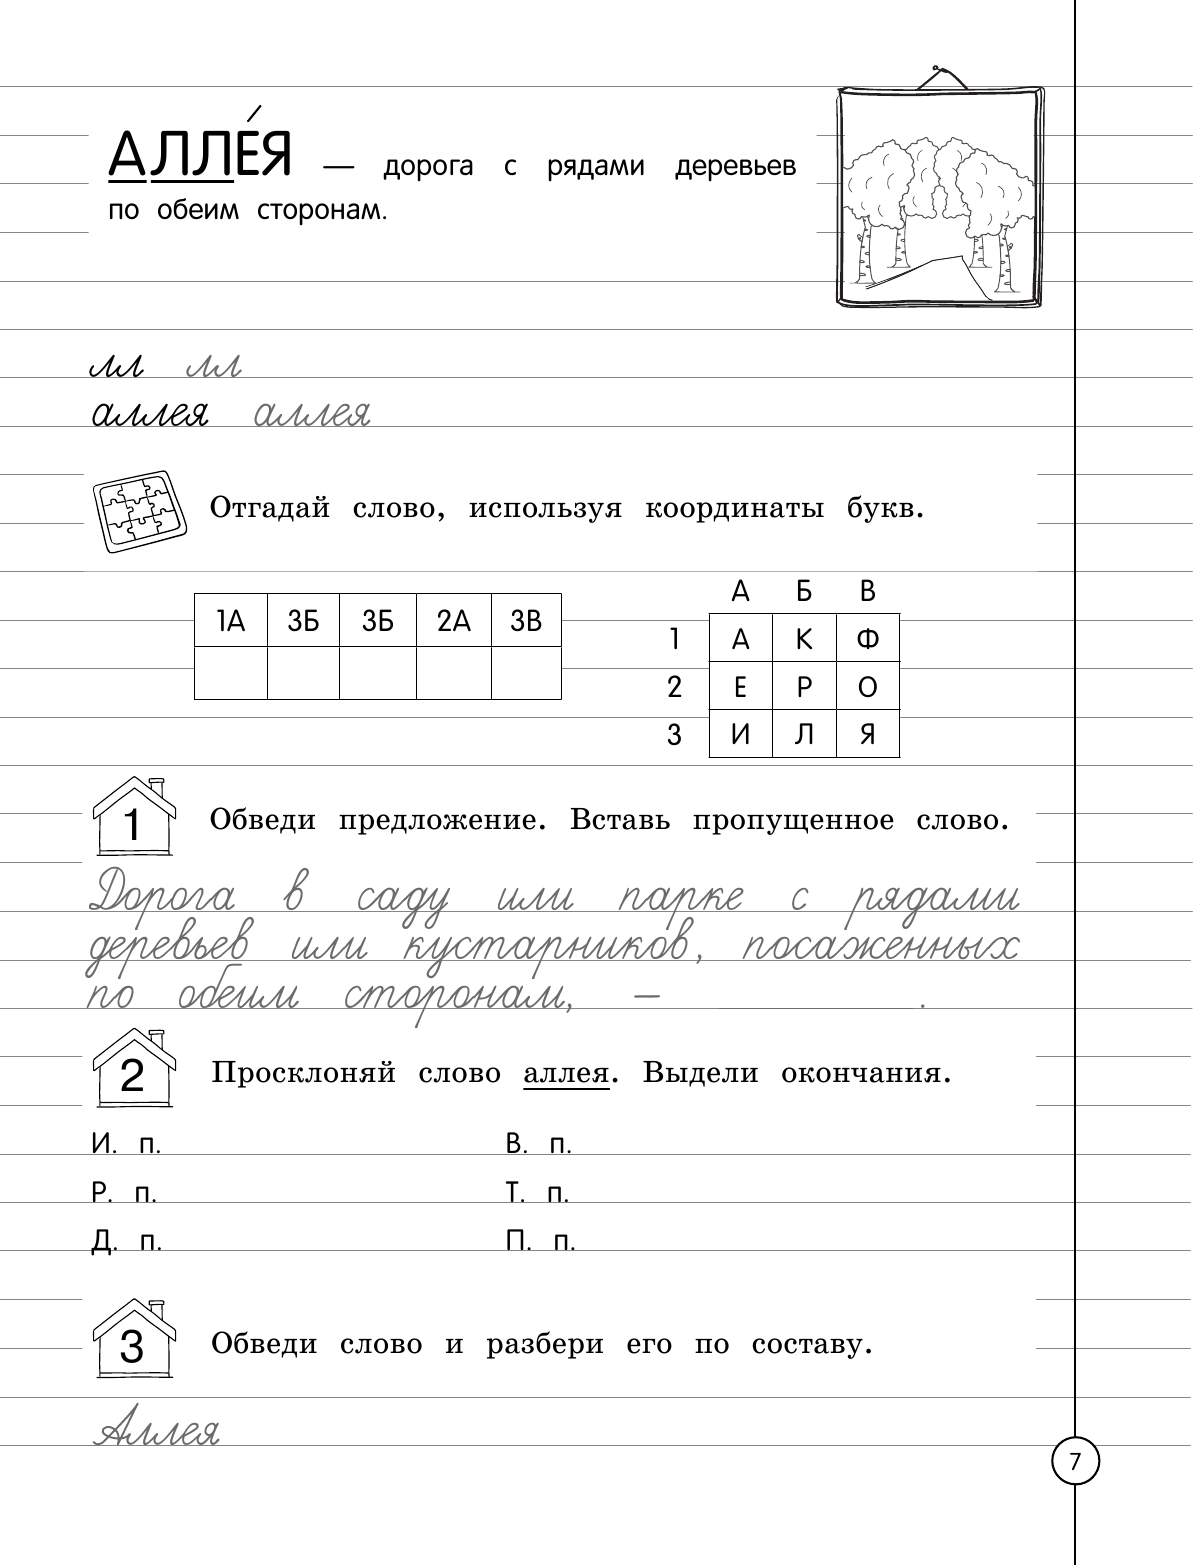 АЛЛЕ́Я — дорога с рядами деревьев
по обеим сторонам.
лл лл
аллея аллея
Отгадай слово, используя координаты букв.
1А 3Б 3Б 2А 3В
А Б В
1 А К Ф
2 Е Р О
3 И Л Я
1 Обведи предложение. Вставь пропущенное слово.
Дорога в саду или парке с рядами
деревьев или кустарников, посаженных
по обеим сторонам, — ____________.
2 Просклоняй слово аллея. Выдели окончания.
И. п. В. п.
Р. п. Т. п.
Д. п. П. п.
3 Обведи слово и разбери его по составу.
Аллея
7